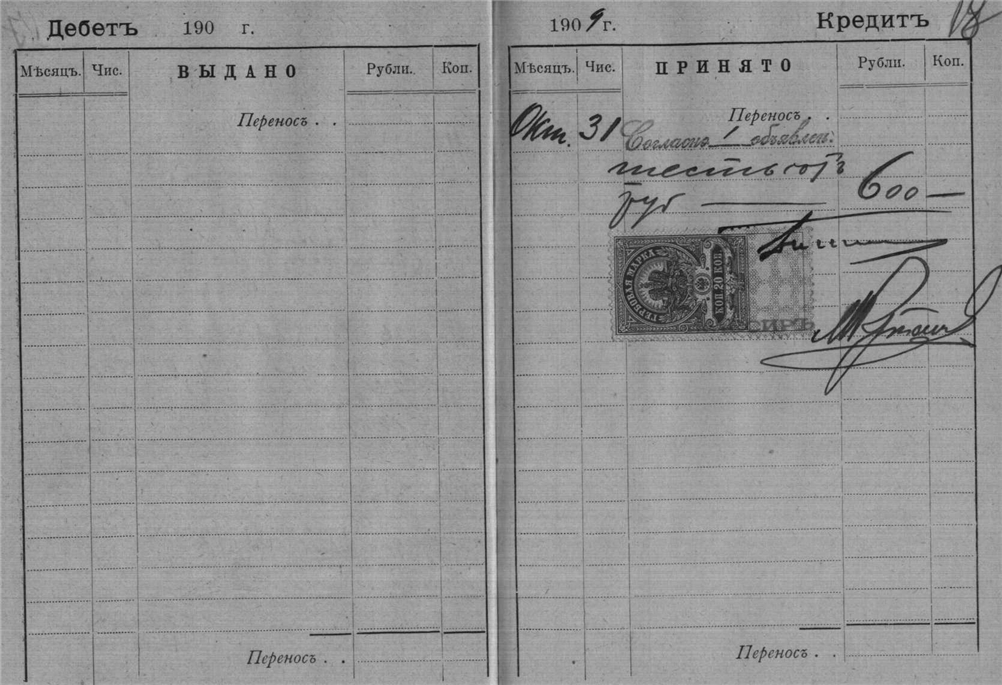 Дебетъ 190 г.
Мѣсяцъ. Чис. ВЫДАНО Рубли. Коп.
Переносъ . .
Переносъ . .
1909 г. Кредитъ
Мѣсяцъ. Чис. ПРИНЯТО Рубли. Коп.
Переносъ . .
Окт. 31 Согласно 1 объявлен:
шестьсотъ
руб — 600 —
ГЕРБОВАЯ МАРКА
КОП 20 КОП
Переносъ . .